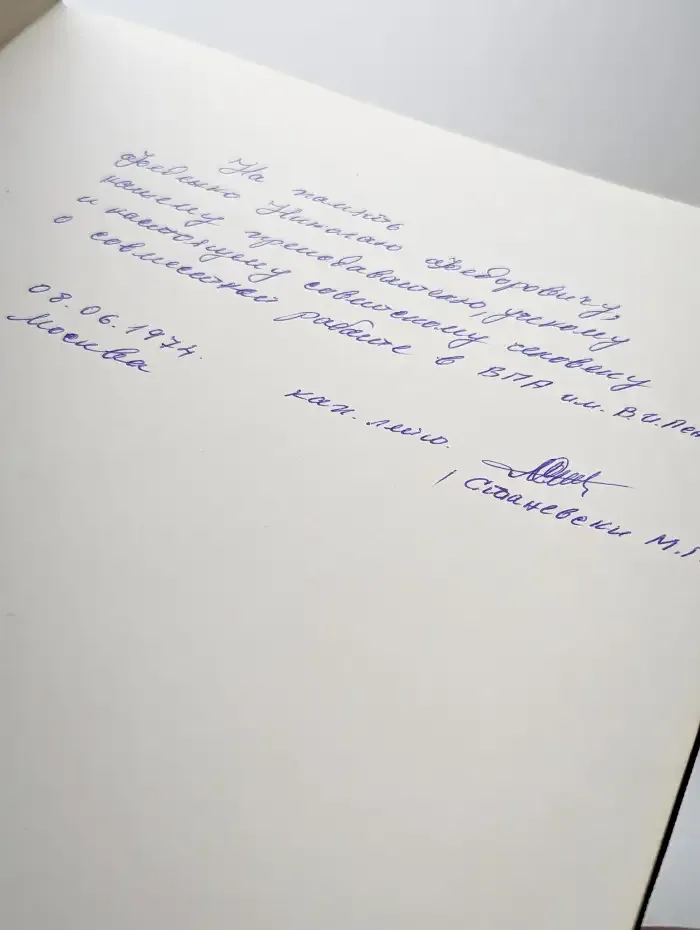 На память
Феденко Николаю Федоровичу,
нашему преподавателю, ученому
и настоящему советскому человеку
о совместной работе в ВПА им. В.И.Лен
08.06.1974.
Москва
кап. лейт.
/ Станевски М.